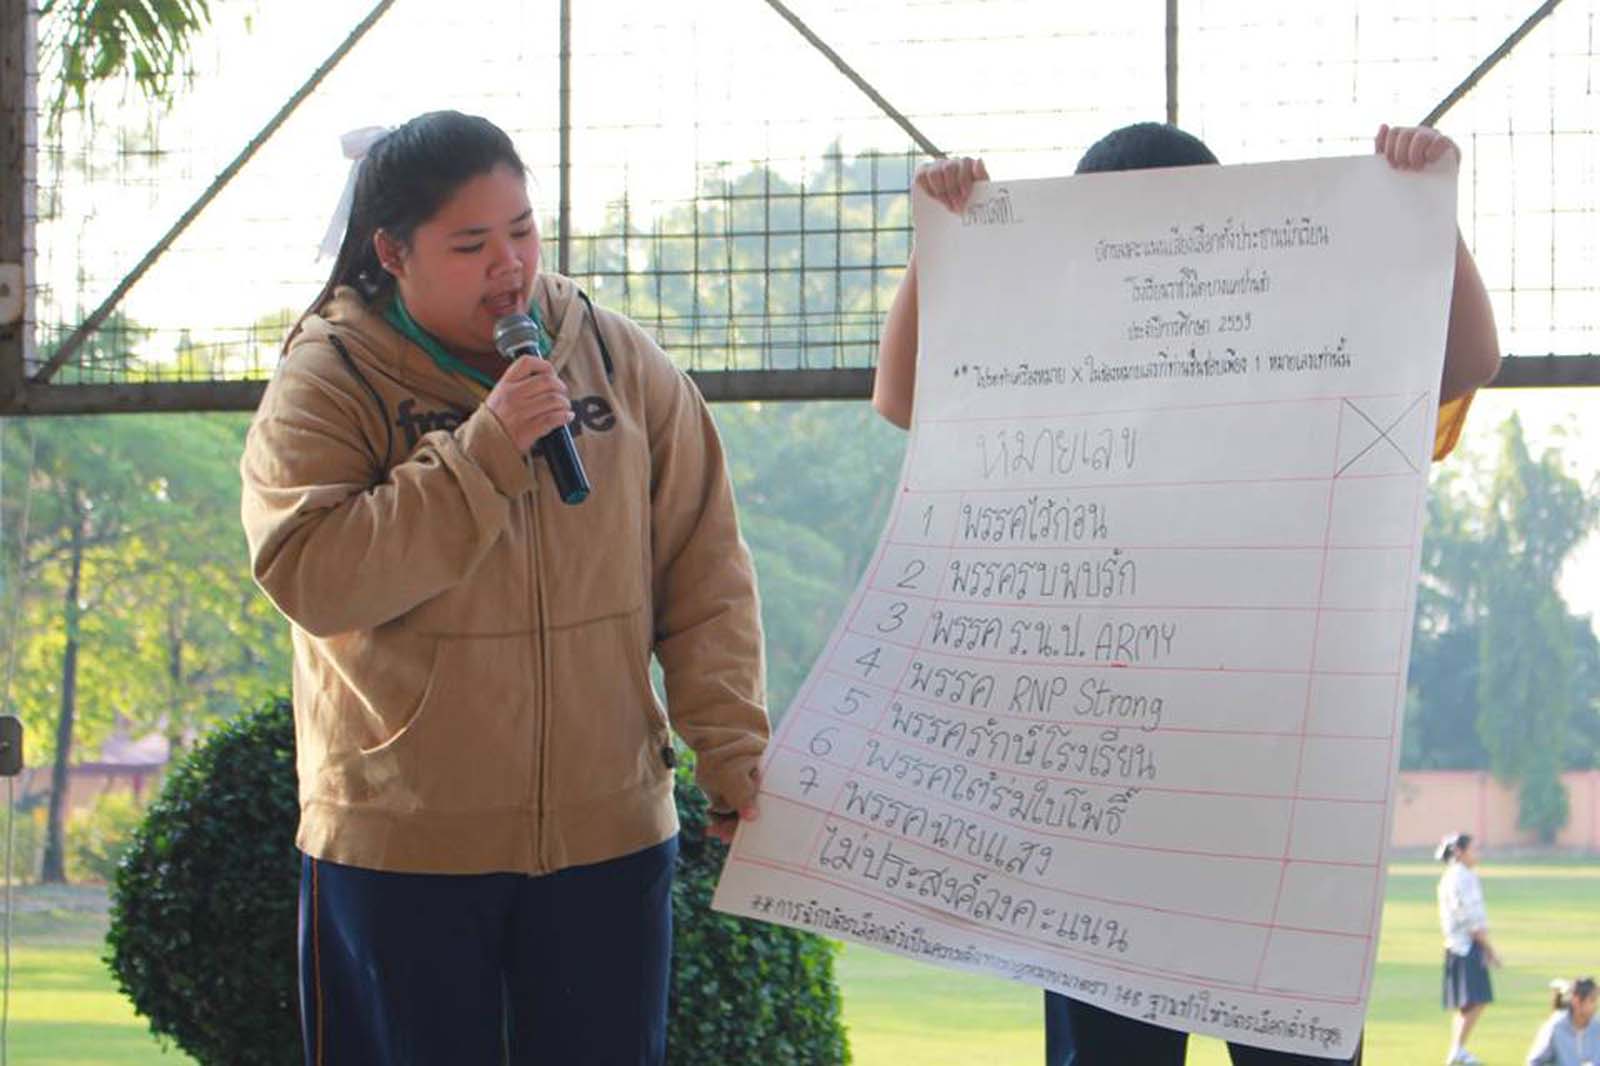 บัตรลงคะแนนเสียงเลือกตั้งประธานนักเรียน
โรงเรียนราชวินิตบางแคปานขำ
ประจำปีการศึกษา 2559
** โปรดทำเครื่องหมาย X ในช่องหมายเลขที่ท่านชื่นชอบเพียง 1 หมายเลขเท่านั้น
หมายเลข X
1 พรรคไว้ก่อน
2 พรรครบพบรัก
3 พรรค ร.น.ป. ARMY
4 พรรค RNP Strong
5 พรรครักษ์โรงเรียน
6 พรรคใต้ร่มใบโพธิ์
7 พรรคฉายแสง
ไม่ประสงค์ลงคะแนน
** การฉีกบัตรเลือกตั้งเป็นความผิดทางกฎหมายมาตรา 148 ฐานทำให้บัตรเลือกตั้งชำรุด